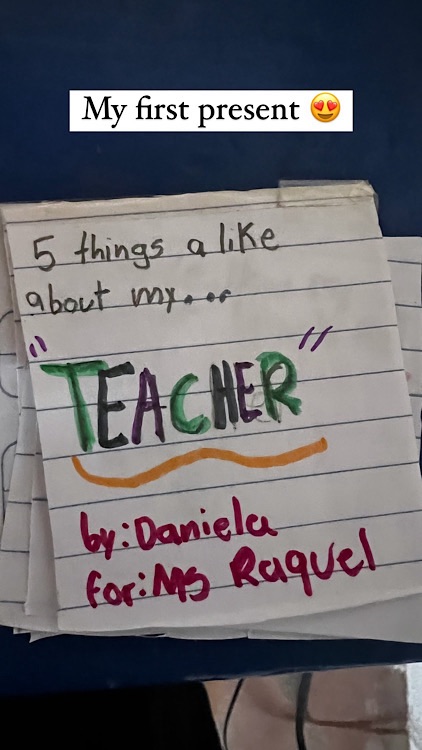 My first present 😍
5 things a like
about my...
"TEACHER"
by: Daniela
for: Ms Raquel